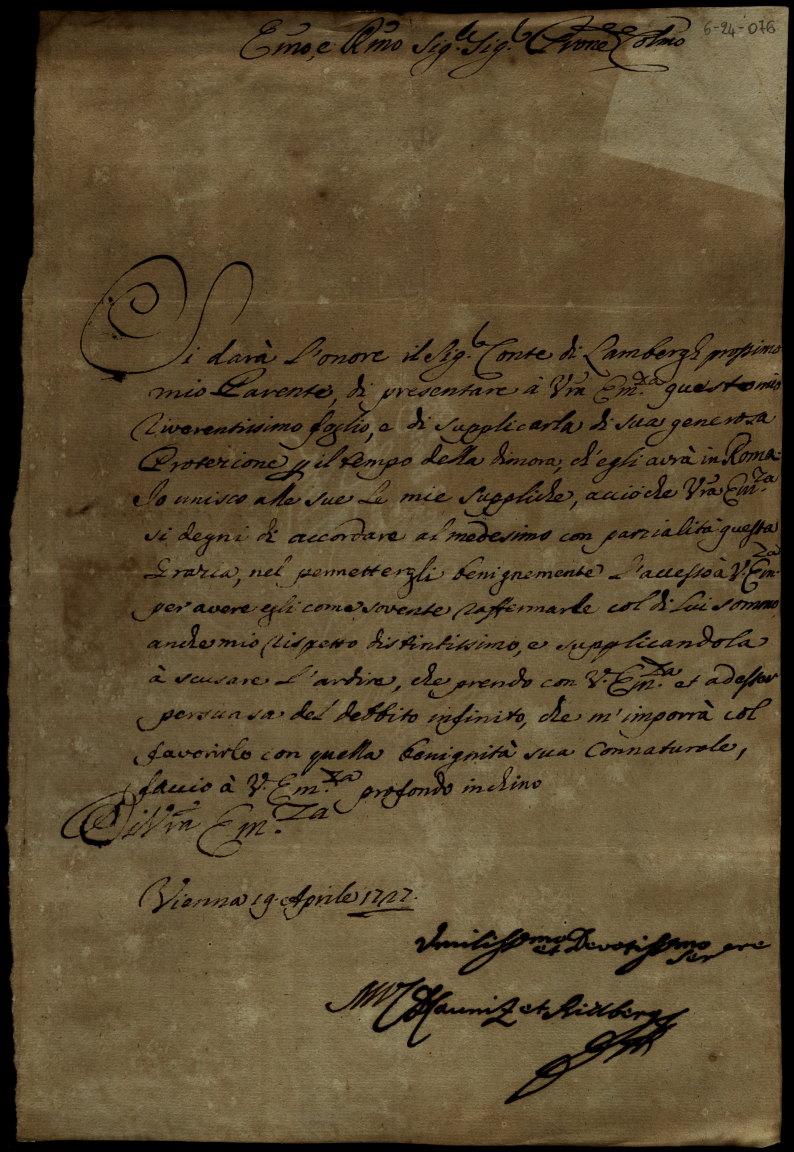 6-24-076
Emo, e Rmo Sig.r Sig.r Prone Colmo
Si darà l'onore il Sig.r Conte di Lambergh prossimo
mio Parente, di presentare à Vra Em.za questo mio
riverentissimo foglio, e di supplicarla di sua generosa
Protezione p il tempo della dimora, ch'egli avrà in Roma.
Io unisco alle sue le mie suppliche, acciò che Vra Em.za
si degni di accordare al medesimo con parzialità questa
Grazia, nel permettergli benignemente l'accesso à V. Em.za
per avere egli come sovente raffermarle col di lui sommo,
anche mio rispetto distintissimo, e supplicandola
à scusare l'ardire, che prendo con V. Em.za et ad esser
persuasa del debbito infinito, che m'imporrà col
favorirlo con quella benignità sua connaturale,
faccio à V. Em.za profondo inchino
Di Vra Em.za
Vienna 19. Aprile 1727.
Umilissimo et Devotissimo
Ser re
MU Kauniz et Ritberg